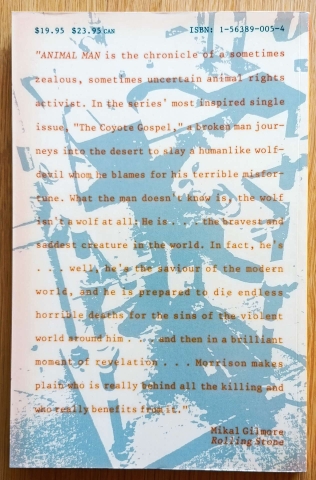 $19.95 $23.95 CAN ISBN: 1-56389-005-4
"ANIMAL MAN is the chronicle of a sometimes
zealous, sometimes uncertain animal rights
activist. In the series' most inspired single
issue, "The Coyote Gospel," a broken man jour-
neys into the desert to slay a humanlike wolf-
devil whom he blames for his terrible misfor-
tune. What the man doesn't know is, the wolf
isn't a wolf at all: He is . . . the bravest and
saddest creature in the world. In fact, he's
. . . well, he's the saviour of the modern
world, and he is prepared to die endless
horrible deaths for the sins of the violent
world around him . . . and then in a brilliant
moment of revelation . . . Morrison makes
plain who is really behind all the killing and
who really benefits from it."
Mikal Gilmore
Rolling Stone